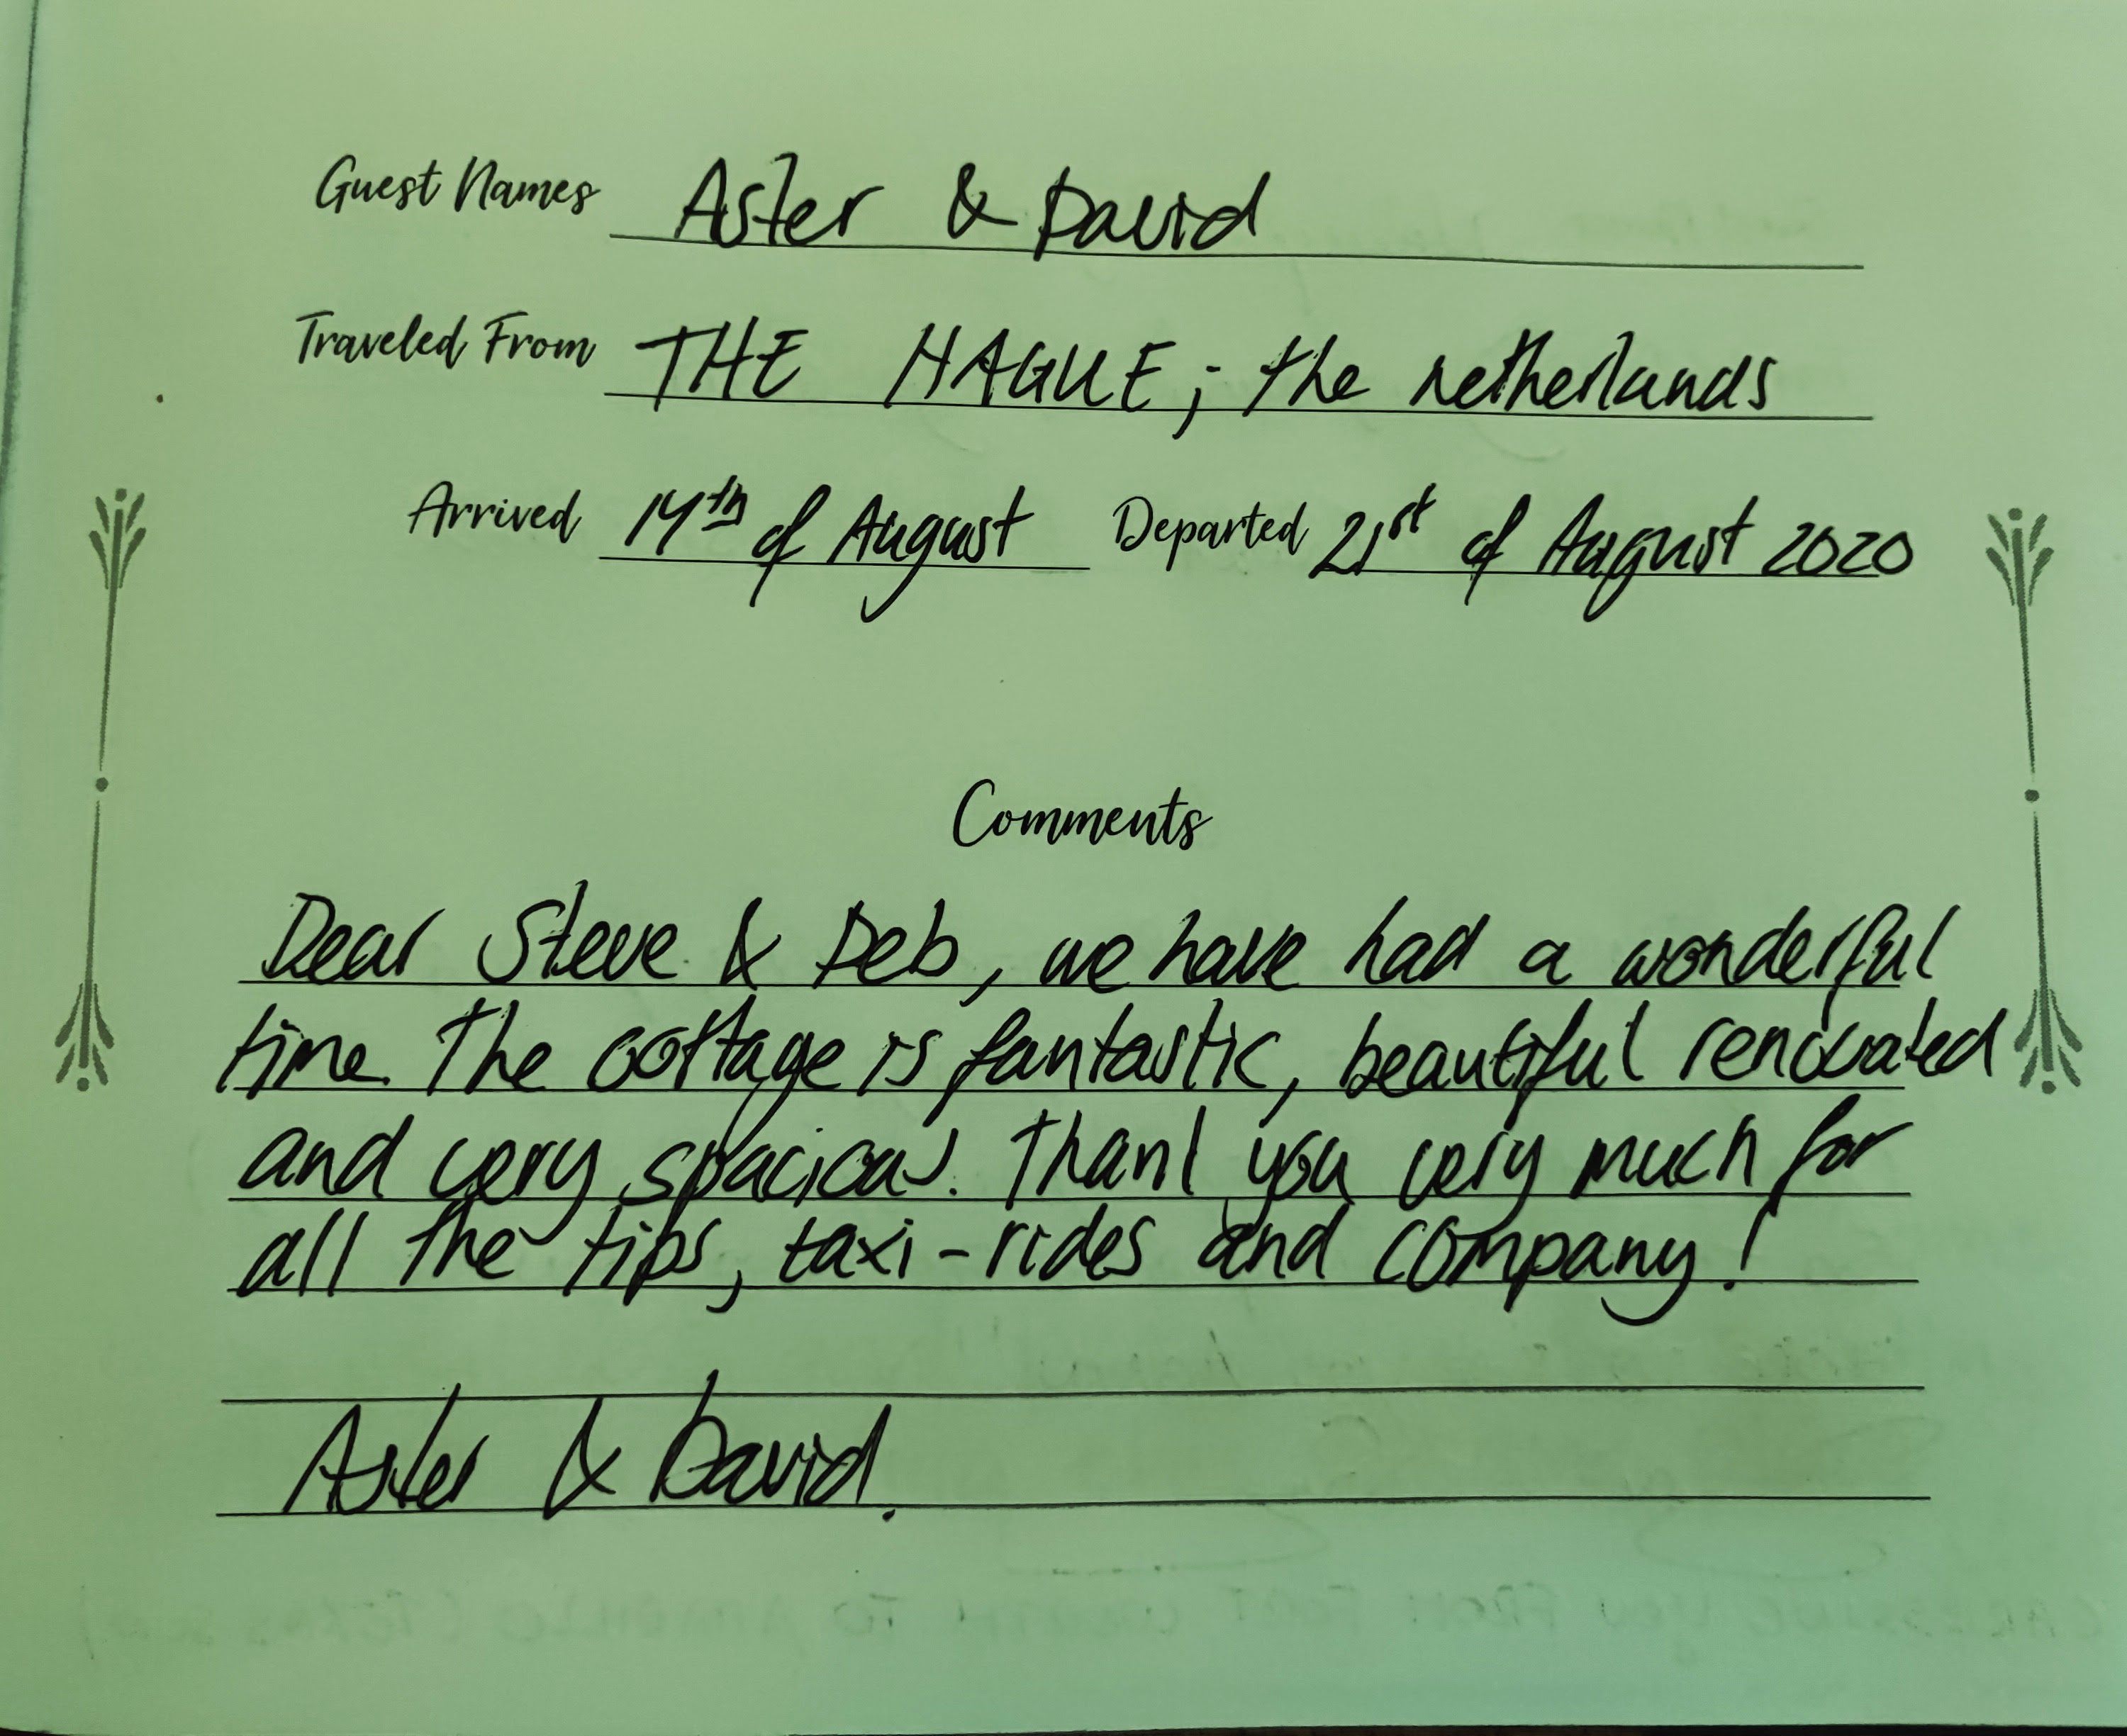 Guest Names Aster & David
Traveled From THE HAGUE, the netherlands
Arrived 14th of August Departed 21st of August 2020
Comments
Dear Steve & Deb, we have had a wonderful
time. The cottage is fantastic, beautiful renovated
and very spacious. Thank you very much for
all the tips, taxi-rides and company!
Aster & David.